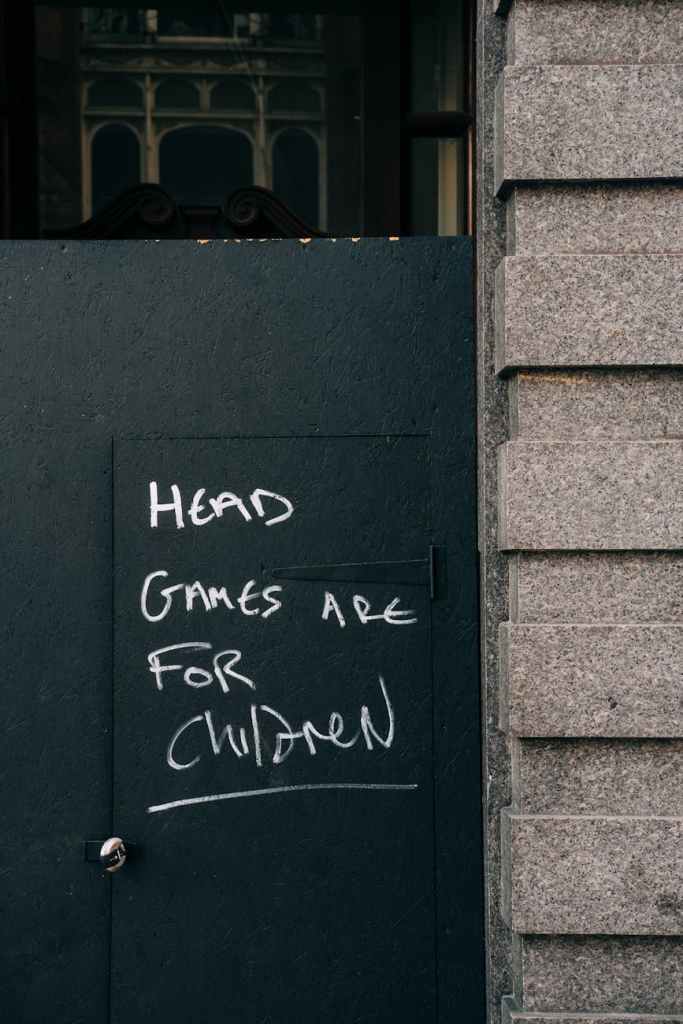 HEAD
GAMES ARE
FOR
CHilDREN